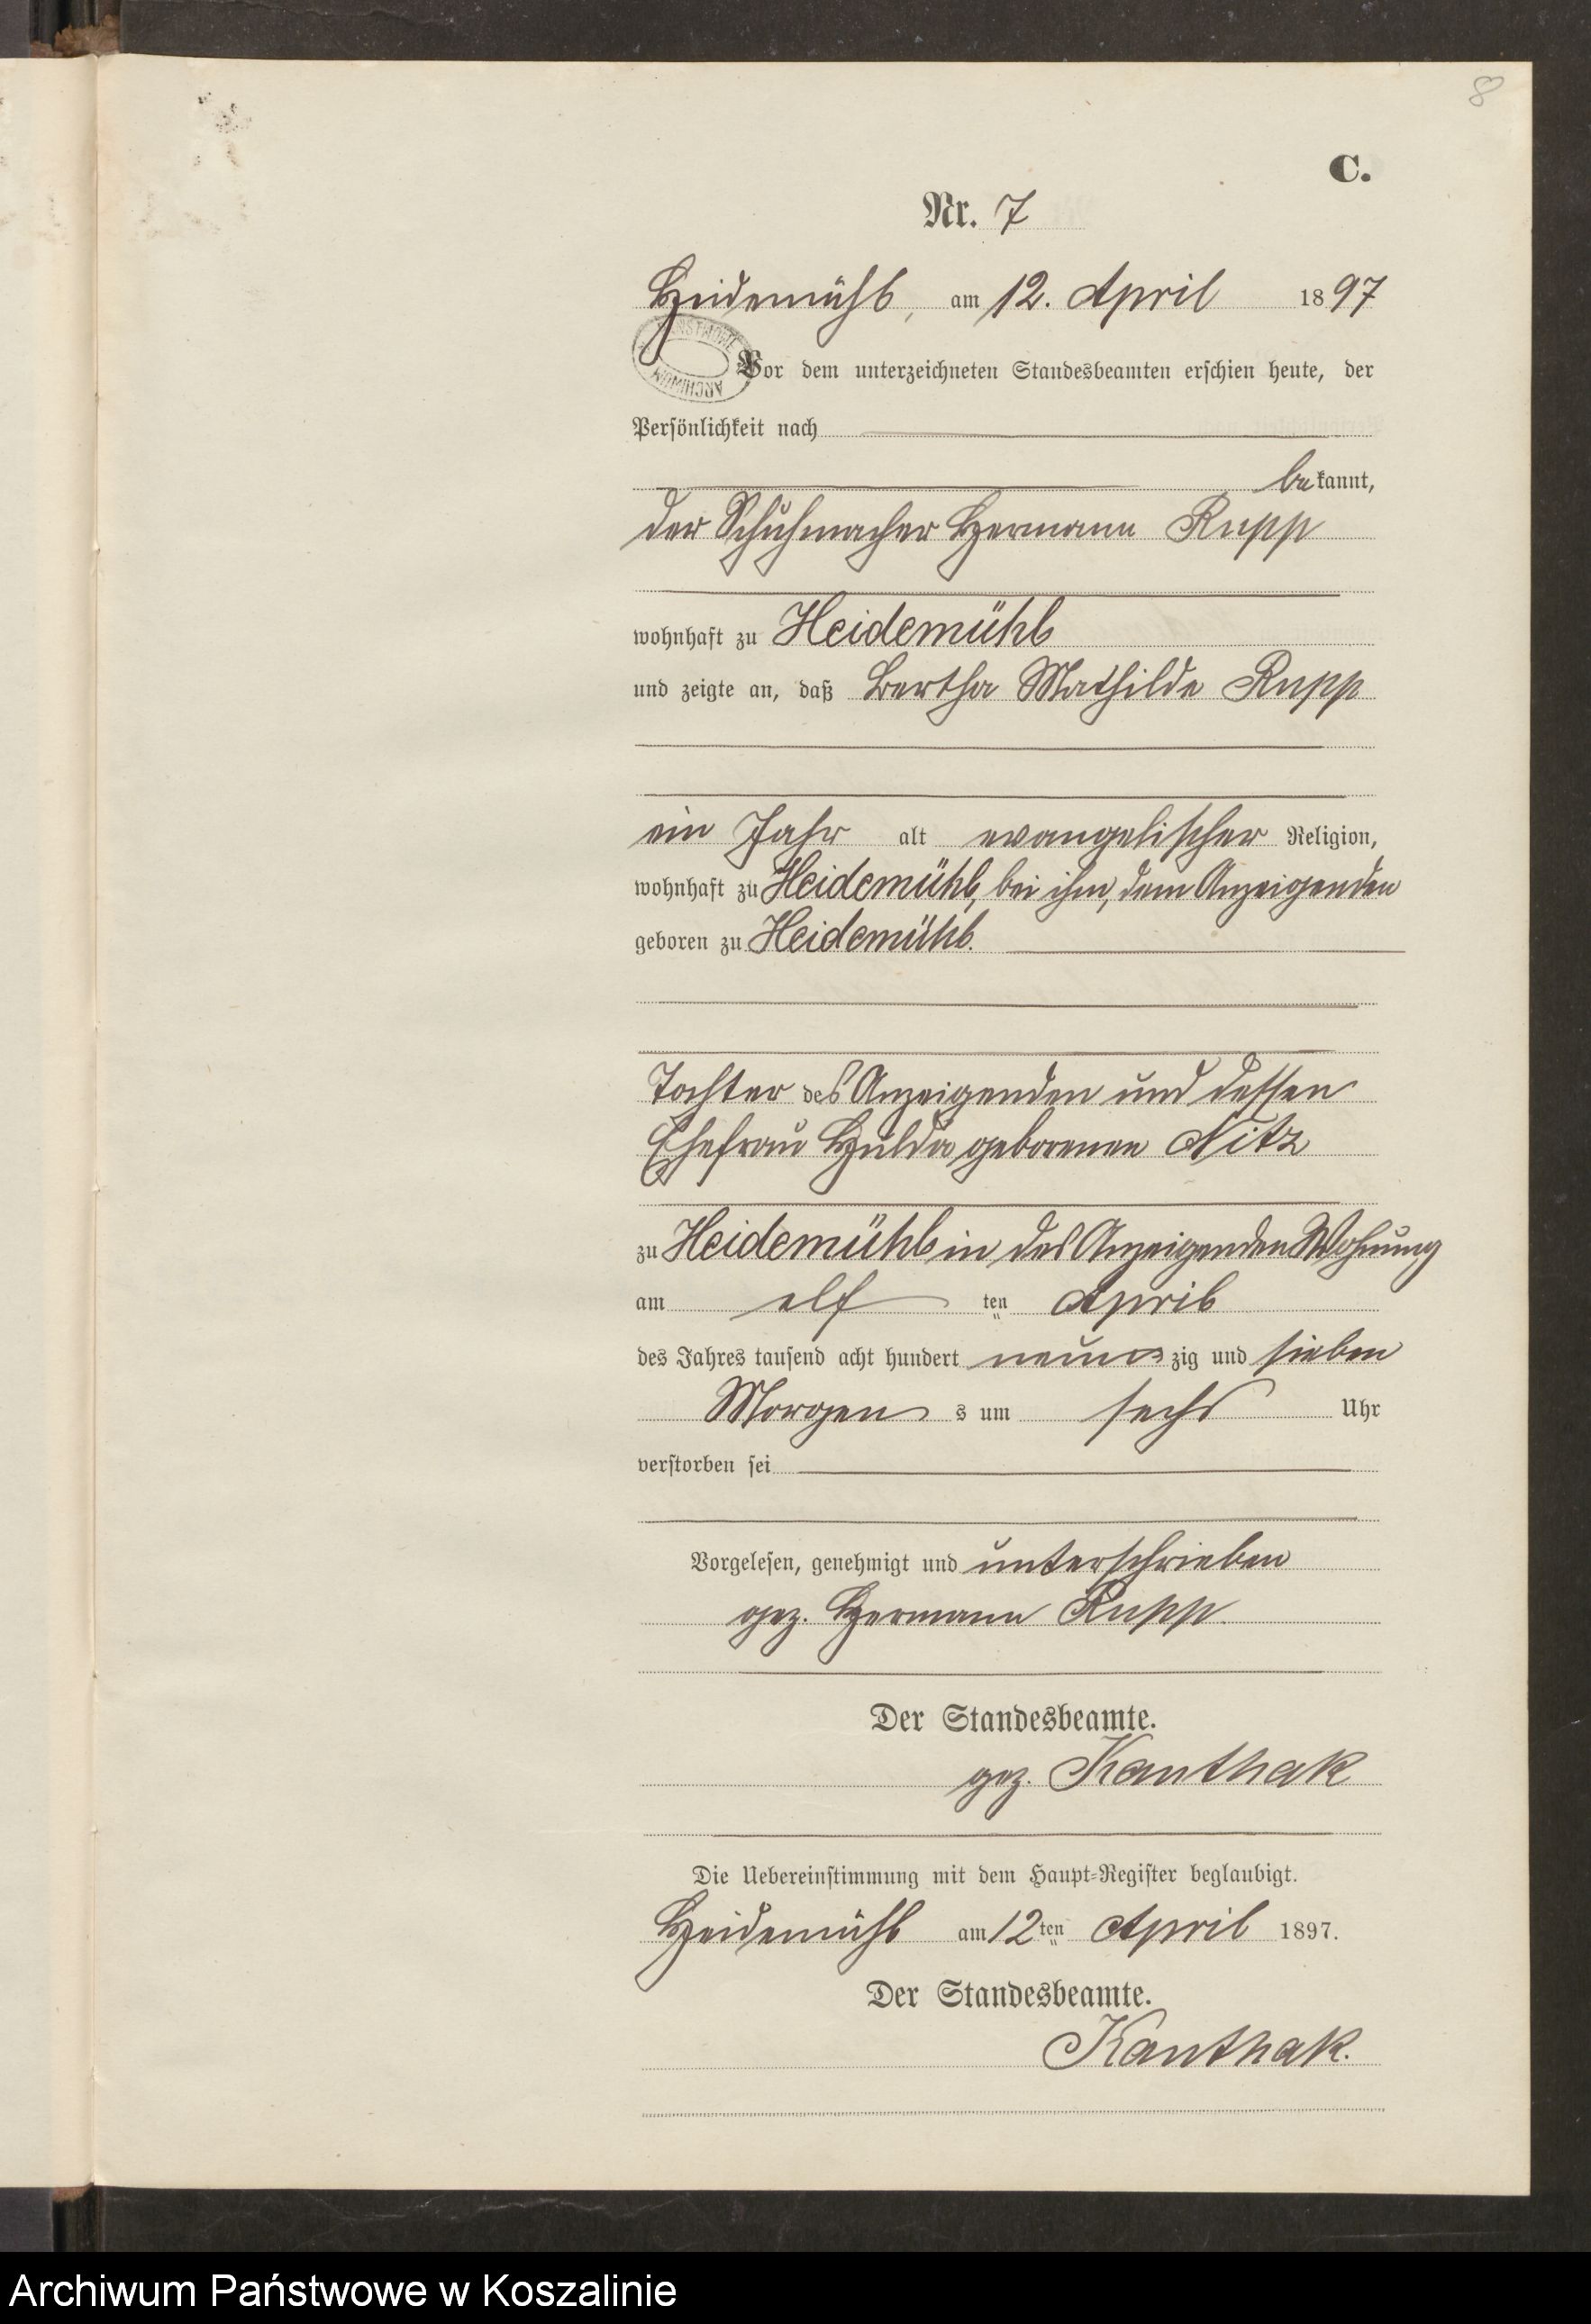 8
C.
Nr. 7
Heidemühl, am 12. April 1897
Vor dem unterzeichneten Standesbeamten erschien heute, der
Persönlichkeit nach
bekannt,
der Schuhmacher Hermann Rupp
wohnhaft zu Heidemühl
und zeigte an, daß Bertha Mathilde Rupp
ein Jahr alt evangelischer Religion,
wohnhaft zu Heidemühl, bei ihm, dem Anzeigenden
geboren zu Heidemühl.
Tochter des Anzeigenden und dessen
Ehefrau Hulda geborenen Nitz
zu Heidemühl in des Anzeigenden Wohnung
am elf ten April
des Jahres tausend acht hundert neun zig und sieben
Morgen s um sechs Uhr
verstorben sei
Vorgelesen, genehmigt und unterschrieben
gez. Hermann Rupp.
Der Standesbeamte.
gez. Kanthak
Die Uebereinstimmung mit dem Haupt-Register beglaubigt.
Heidemühl am 12ten April 1897.
Der Standesbeamte.
Kanthak.
Archiwum Państwowe w Koszalinie